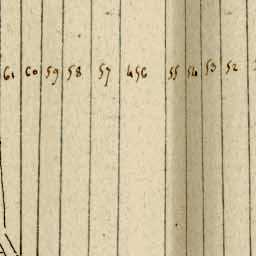 61 60 59 58 57 456 55 54 53 52